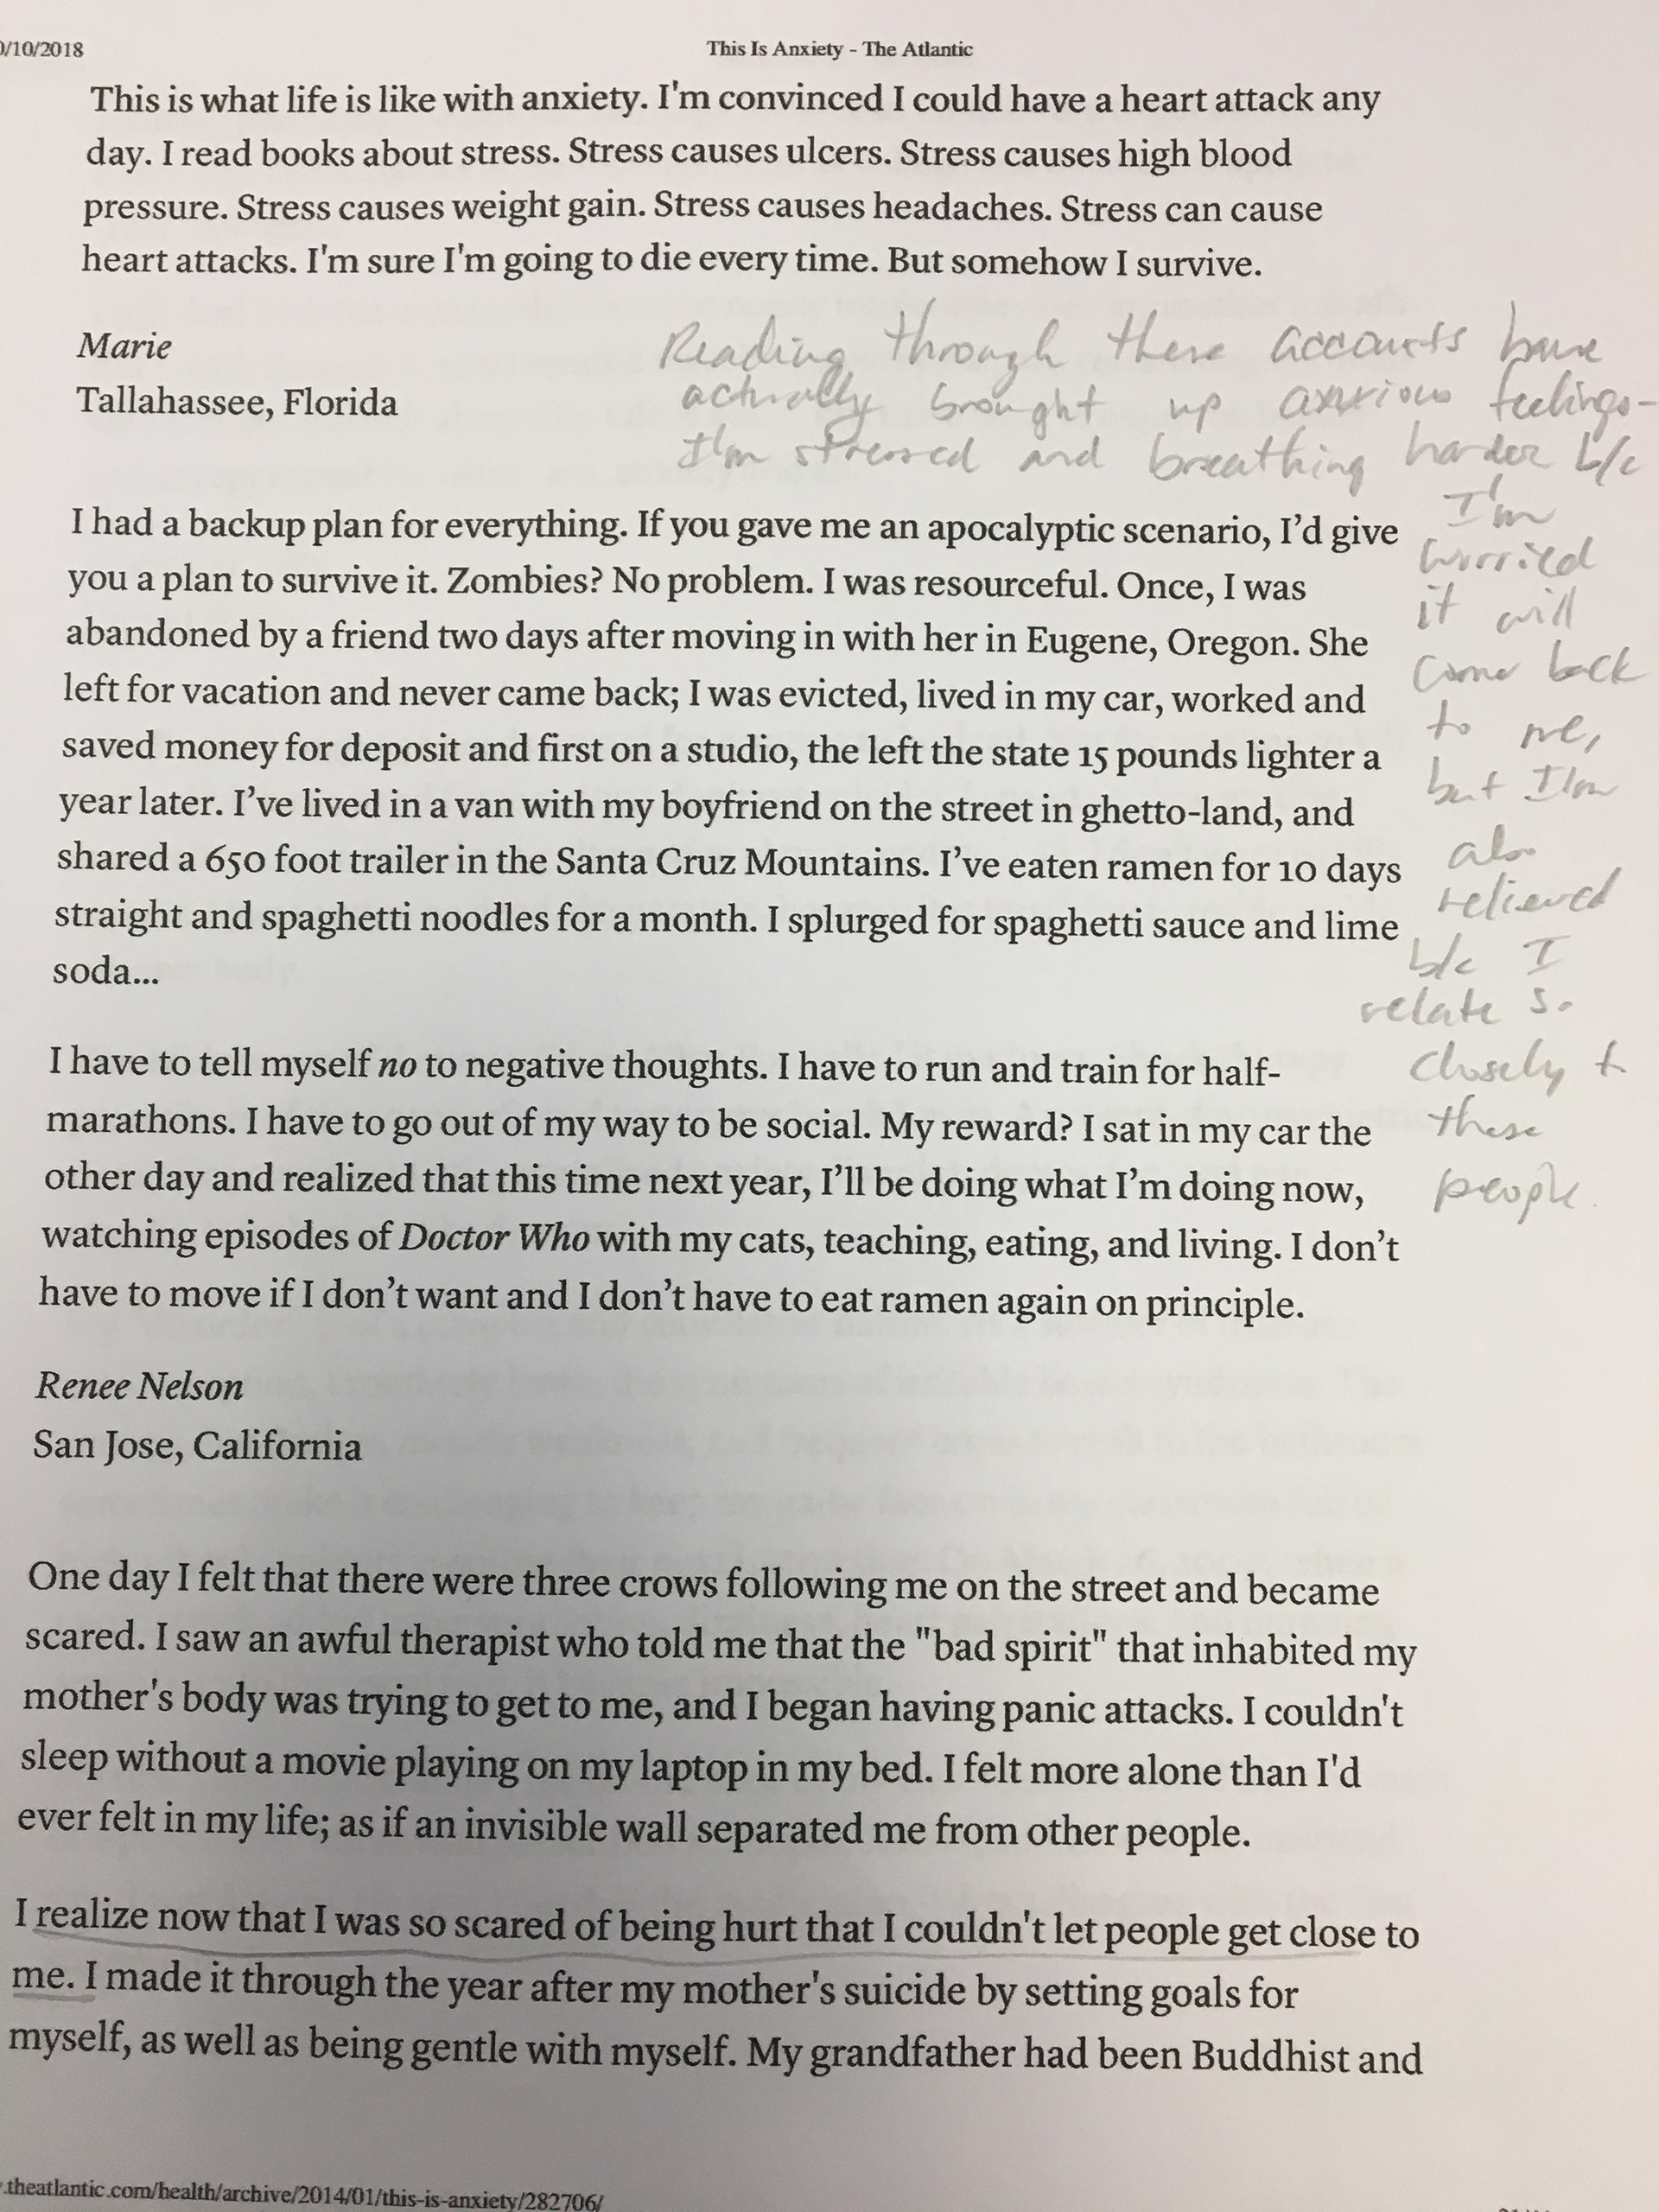 0/10/2018
This Is Anxiety - The Atlantic
This is what life is like with anxiety. I'm convinced I could have a heart attack any
day. I read books about stress. Stress causes ulcers. Stress causes high blood
pressure. Stress causes weight gain. Stress causes headaches. Stress can cause
heart attacks. I'm sure I'm going to die every time. But somehow I survive.
Marie
Tallahassee, Florida
Reading through these accounts have
actually brought up anxious feelings-
I'm stressed and breathing harder b/c
I'm
worried
it will
come back
to me,
but I'm
also
relieved
b/c I
relate so
closely to
these
people.
I had a backup plan for everything. If you gave me an apocalyptic scenario, I’d give
you a plan to survive it. Zombies? No problem. I was resourceful. Once, I was
abandoned by a friend two days after moving in with her in Eugene, Oregon. She
left for vacation and never came back; I was evicted, lived in my car, worked and
saved money for deposit and first on a studio, the left the state 15 pounds lighter a
year later. I’ve lived in a van with my boyfriend on the street in ghetto-land, and
shared a 650 foot trailer in the Santa Cruz Mountains. I’ve eaten ramen for 10 days
straight and spaghetti noodles for a month. I splurged for spaghetti sauce and lime
soda...
I have to tell myself no to negative thoughts. I have to run and train for half-
marathons. I have to go out of my way to be social. My reward? I sat in my car the
other day and realized that this time next year, I’ll be doing what I’m doing now,
watching episodes of Doctor Who with my cats, teaching, eating, and living. I don’t
have to move if I don’t want and I don’t have to eat ramen again on principle.
Renee Nelson
San Jose, California
One day I felt that there were three crows following me on the street and became
scared. I saw an awful therapist who told me that the "bad spirit" that inhabited my
mother's body was trying to get to me, and I began having panic attacks. I couldn't
sleep without a movie playing on my laptop in my bed. I felt more alone than I'd
ever felt in my life; as if an invisible wall separated me from other people.
I realize now that I was so scared of being hurt that I couldn't let people get close to
me. I made it through the year after my mother's suicide by setting goals for
myself, as well as being gentle with myself. My grandfather had been Buddhist and
.theatlantic.com/health/archive/2014/01/this-is-anxiety/282706/